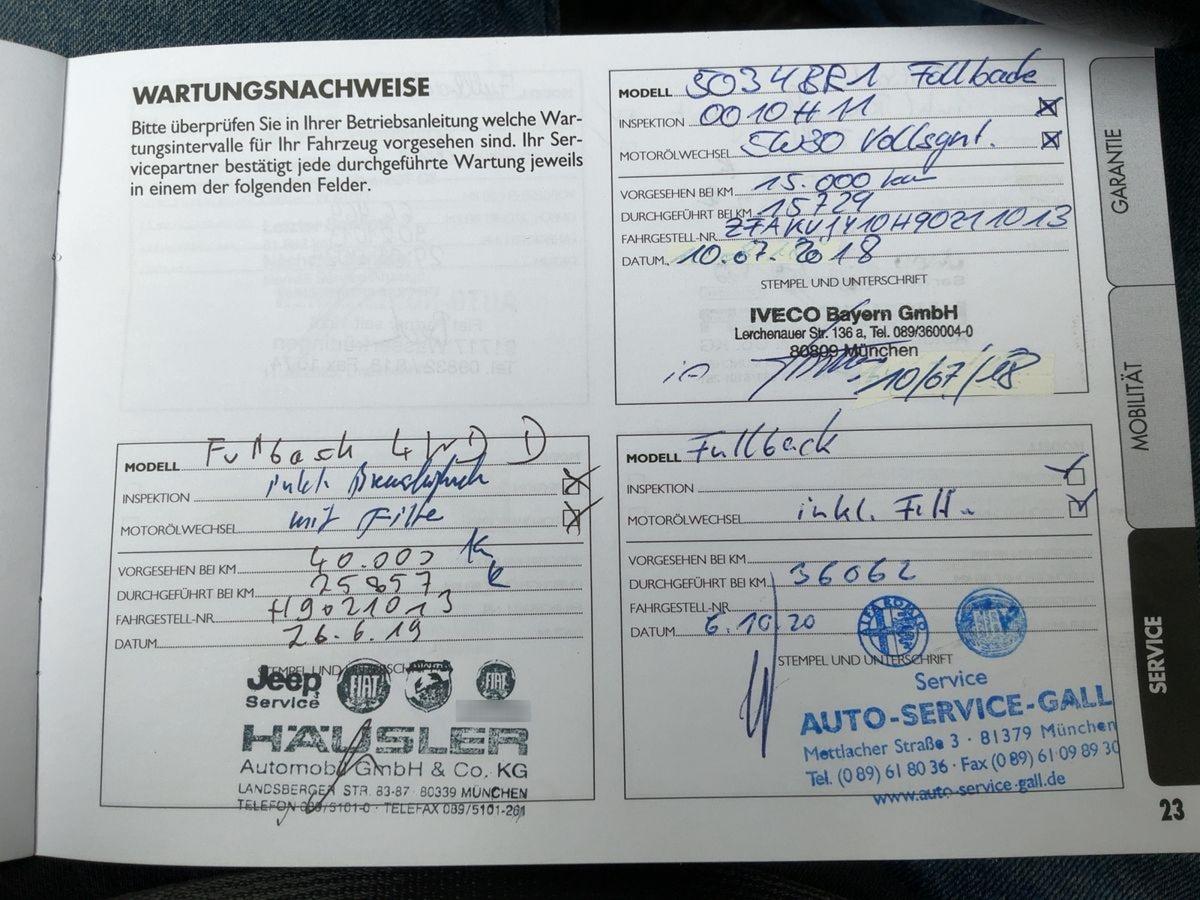 WARTUNGSNACHWEISE
Bitte überprüfen Sie in Ihrer Betriebsanleitung welche War-
tungsintervalle für Ihr Fahrzeug vorgesehen sind. Ihr Ser-
vicepartner bestätigt jede durchgeführte Wartung jeweils
in einem der folgenden Felder.
MODELL 50348R1 Fullback
INSPEKTION 0010H11
MOTORÖLWECHSEL 5W30 Vollsynt.
VORGESEHEN BEI KM 15.000 km
DURCHGEFÜHRT BEI KM 15729
FAHRGESTELL-NR. ZFAKV1Y10H9021013
DATUM 10.07.2018
STEMPEL UND UNTERSCHRIFT
IVECO Bayern GmbH
Lerchenauer Str. 136 a, Tel. 089/360004-0
80809 München
10/07/18
MODELL Fullback 4WD D
INSPEKTION inkl.
MOTORÖLWECHSEL mit Filter
VORGESEHEN BEI KM 40.000 km
DURCHGEFÜHRT BEI KM 25857
FAHRGESTELL-NR. H9021013
DATUM 26.6.19
STEMPEL UND UNTERSCHRIFT
Jeep
Service
FIAT
FIAT
HÄUSLER
Automobil GmbH & Co. KG
LANDSBERGER STR. 83-87 · 80339 MÜNCHEN
TELEFON 089/5101-0 · TELEFAX 089/5101-261
MODELL Fullback
INSPEKTION
MOTORÖLWECHSEL inkl. Filt.
VORGESEHEN BEI KM
DURCHGEFÜHRT BEI KM 36062
FAHRGESTELL-NR.
DATUM 6.10.20
ALFA ROMEO
FIAT
STEMPEL UND UNTERSCHRIFT
Service
AUTO-SERVICE-GALL
Mettlacher Straße 3 · 81379 München
Tel. (0 89) 61 80 36 · Fax (0 89) 61 09 89 30
www.auto-service-gall.de
GARANTIE
MOBILITÄT
SERVICE
23